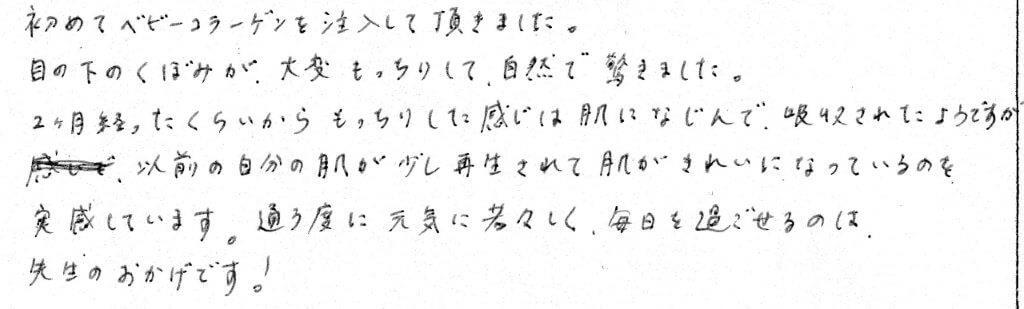 初めてベビーコラーゲンを注入して頂きました。
目の下のくぼみが、大変もっちりして、自然で驚きました。
2ヶ月経ったくらいからもっちりした感じは肌になじんで、吸収されたようですが
、以前の自分の肌が少し再生されて肌がきれいになっているのを
実感しています。通う度に元気に若々しく、毎日を過ごせるのは、
先生のおかげです!